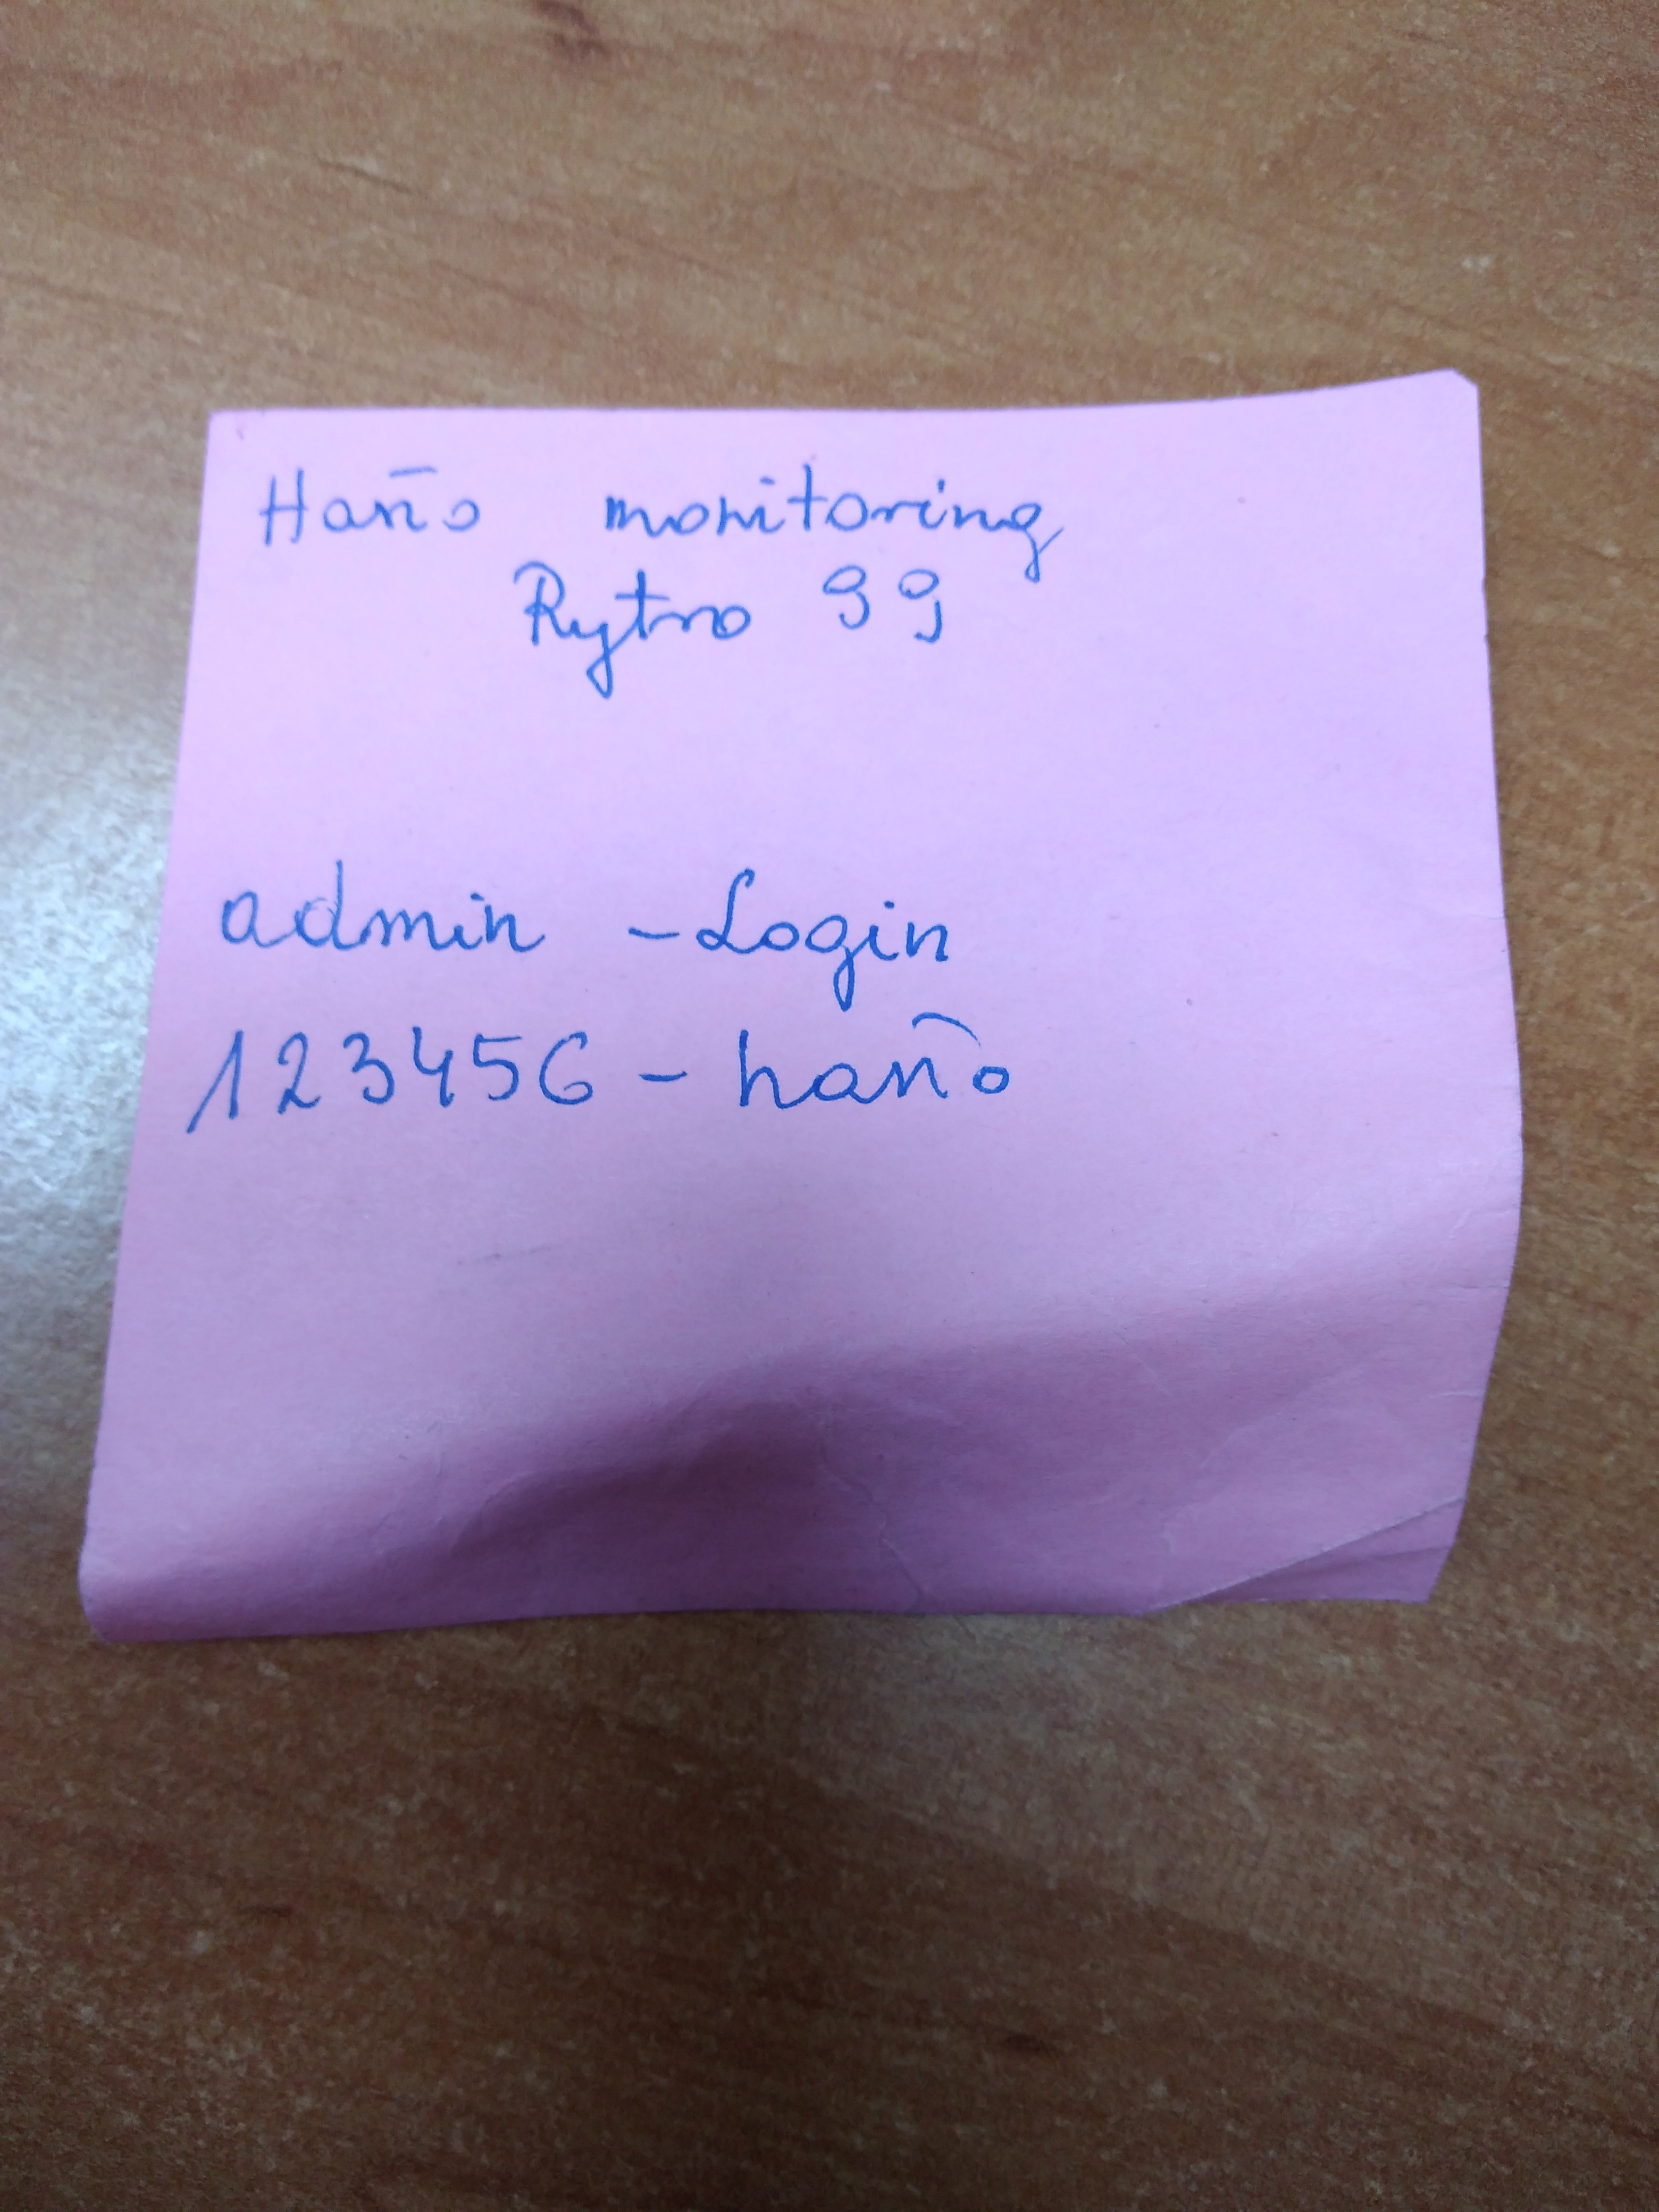 Hasło monitoring
Rytro 99
admin - Login
123456 - hasło